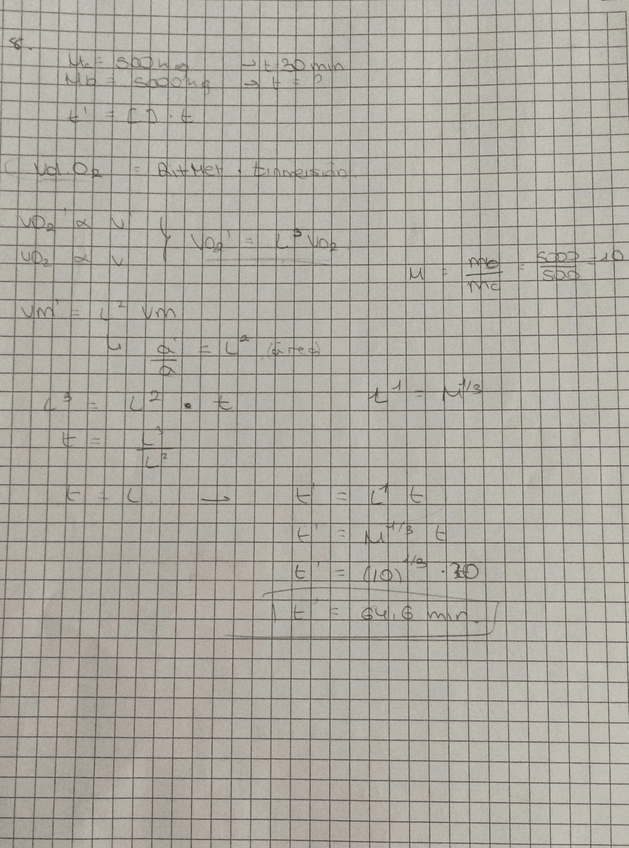 8.
Mc = 500 kg → t: 30 min
Mb = 5000 kg → t = ?
t' = [ ] · t
Vol. O2 = Rit Met · t inmersión
VO2' α V'
VO2 α V } VO2' = L³ VO2
M = mb/mc = 5000/500 = 10
Vm' = L² Vm
↳ a'/a = L² (área)
L³ = L² · t L¹ = M^1/3
t = L³/L²
t = L → t' = L¹ t
t' = M^1/3 t
t' = (10)^1/3 · 30
t' = 64,6 min.